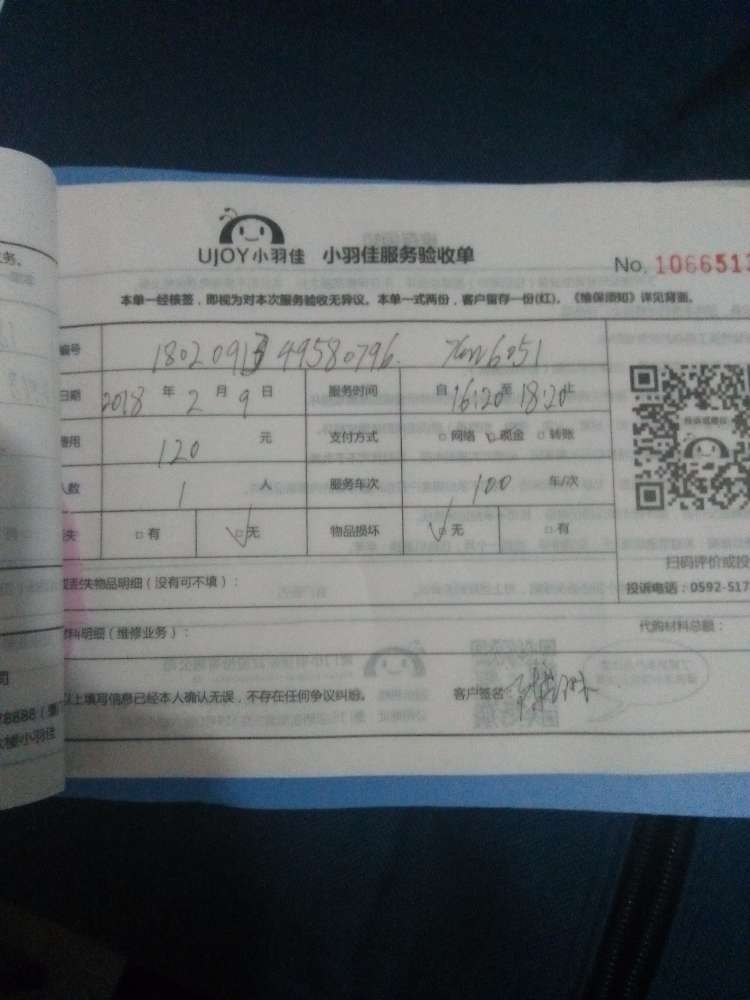 UJOY小羽佳 小羽佳服务验收单
No. 1066513
本单一经核签，即视为对本次服务验收无异议。本单一式两份，客户留存一份(红)。《维保须知》详见背面。
编号
日期 2018 年 2 月 9 日 服务时间 自 16:20 至 18:20 止
费用 120 元 支付方式 □ 网络 □ 现金 □ 转账
人数 1 人 服务车次 100 车/次
失 □ 有 □ 无 物品损坏 □ 无 □ 有
扫码评价或投
丢失物品明细（没有可不填）：
投诉电话：0592-517
料明细（维修业务）：
代购材料总额：
以上填写信息已经本人确认无误，不存在任何争议纠纷。 客户签名：
务。
司
78888（
小羽佳